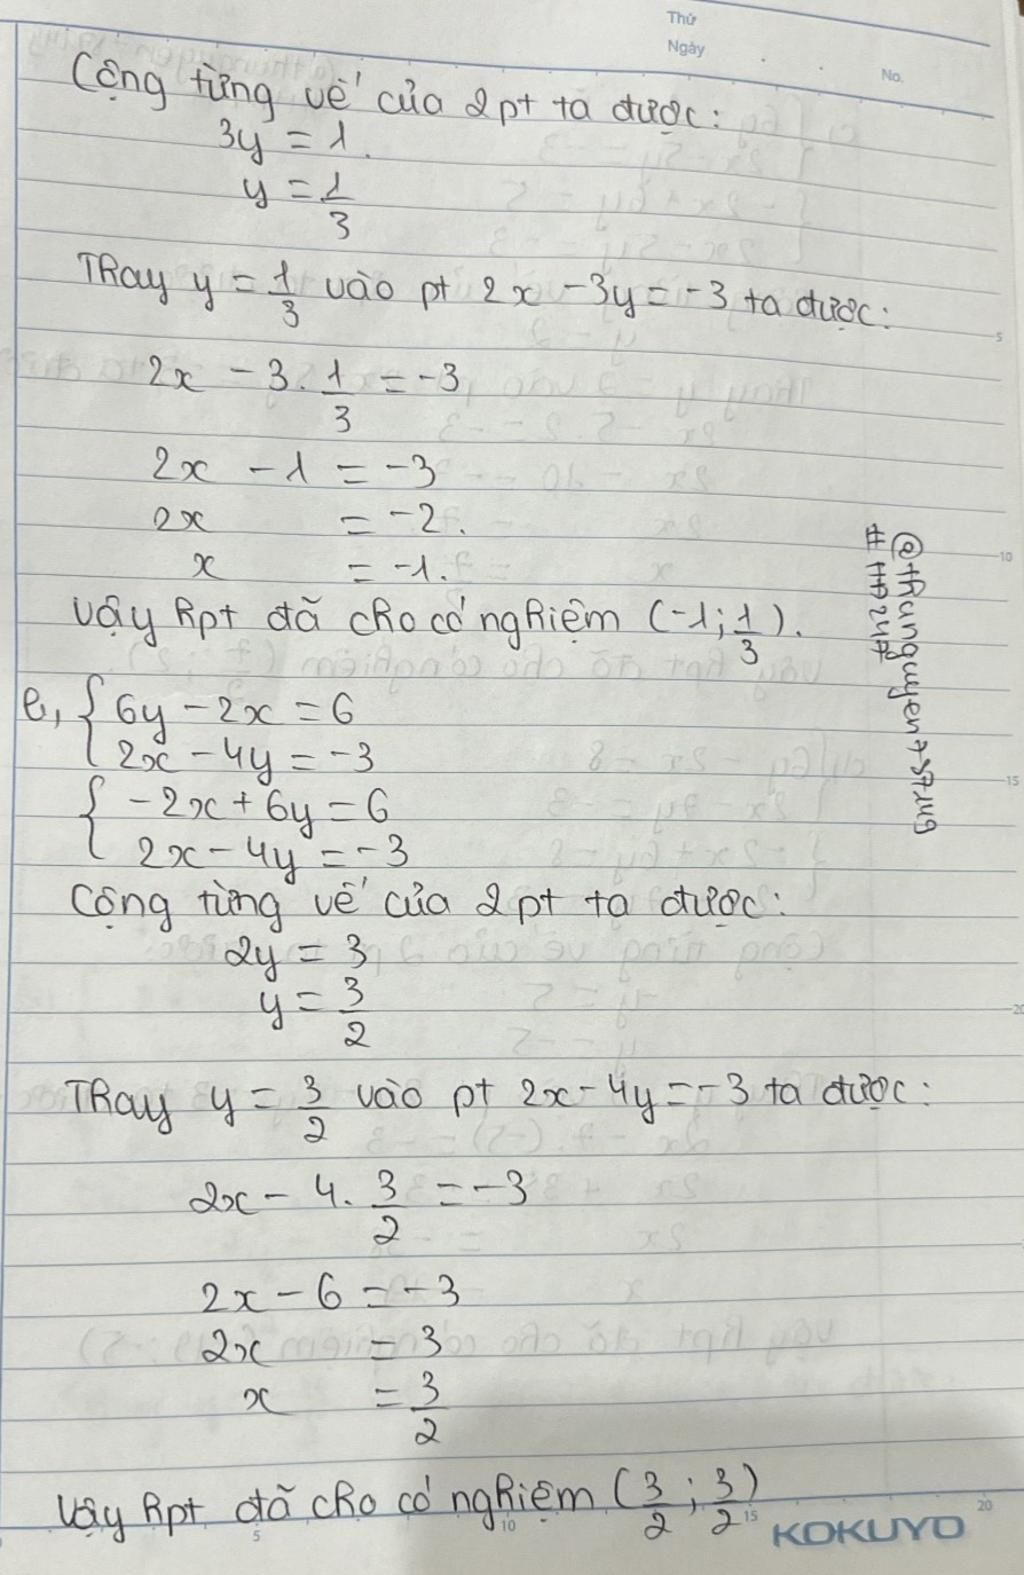 Thứ
Ngày
No.
Cộng từng vế của 2pt ta được:
3y = 1.
y = 1/3
Thay y = 1/3 vào pt 2x - 3y = -3 ta được:
2x - 3. 1/3 = -3
2x - 1 = -3
2x = -2.
x = -1.
Vậy hpt đã cho có nghiệm (-1; 1/3).
e, { 6y - 2x = 6
2x - 4y = -3
{ -2x + 6y = 6
2x - 4y = -3
Cộng từng vế của 2pt ta được:
2y = 3
y = 3/2
Thay y = 3/2 vào pt 2x - 4y = -3 ta được:
2x - 4. 3/2 = -3
2x - 6 = -3
2x = 3
x = 3/2
Vậy hpt đã cho có nghiệm (3/2; 3/2)
5
10
15
20
5
10
15
20
KOKUYO